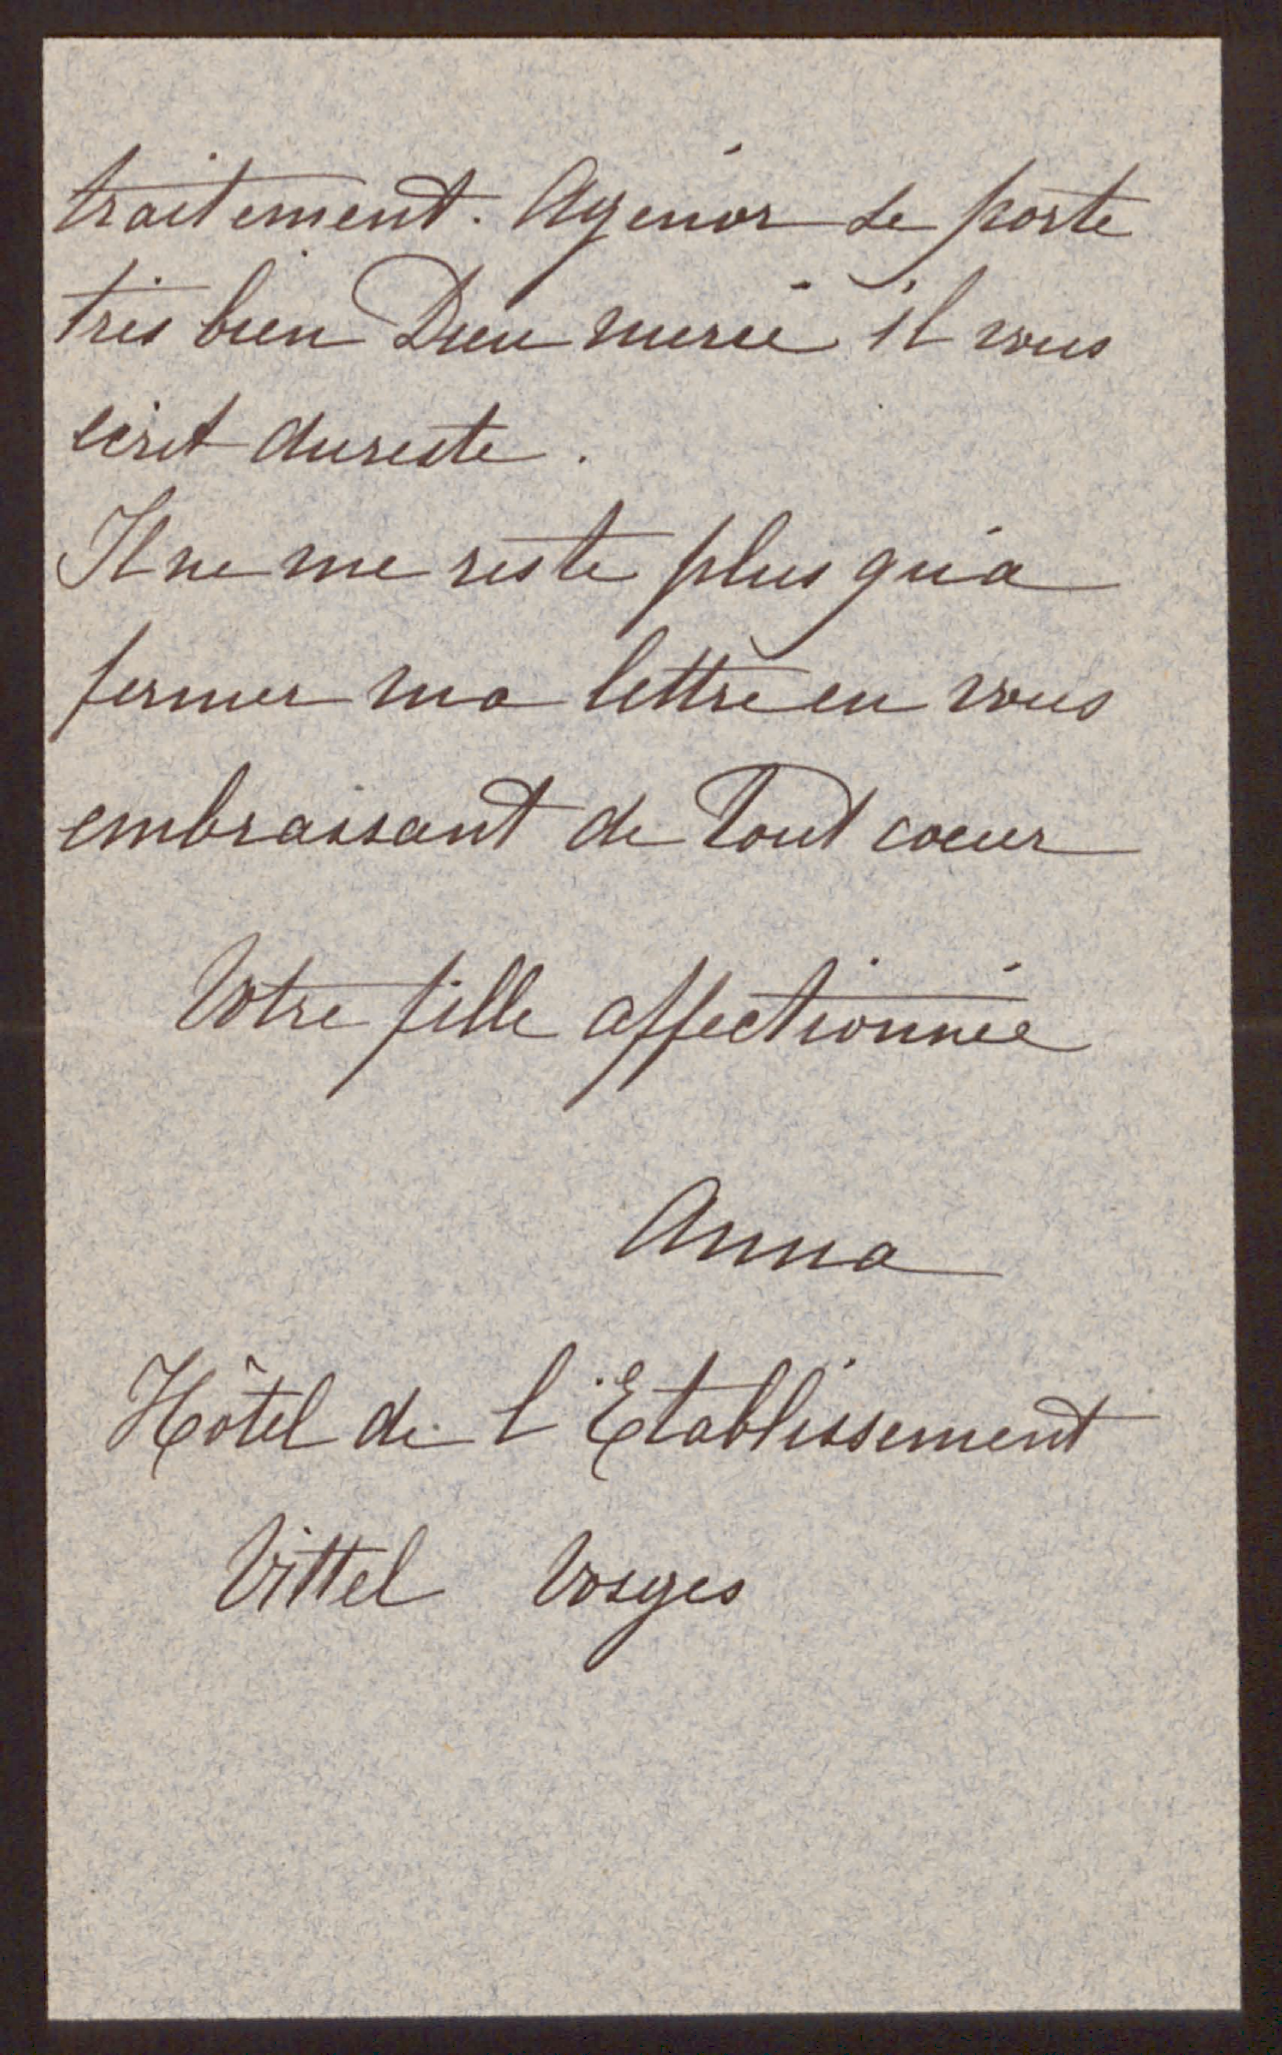 traitement. Agénor se porte
très bien Dieu merci il vous
écrit dureste.
Il ne me reste plus qu'à
fermer ma lettre en vous
embrassant de tout coeur
Votre fille affectionnée
Anna
Hôtel de l'Etablissement
Vittel Vosges